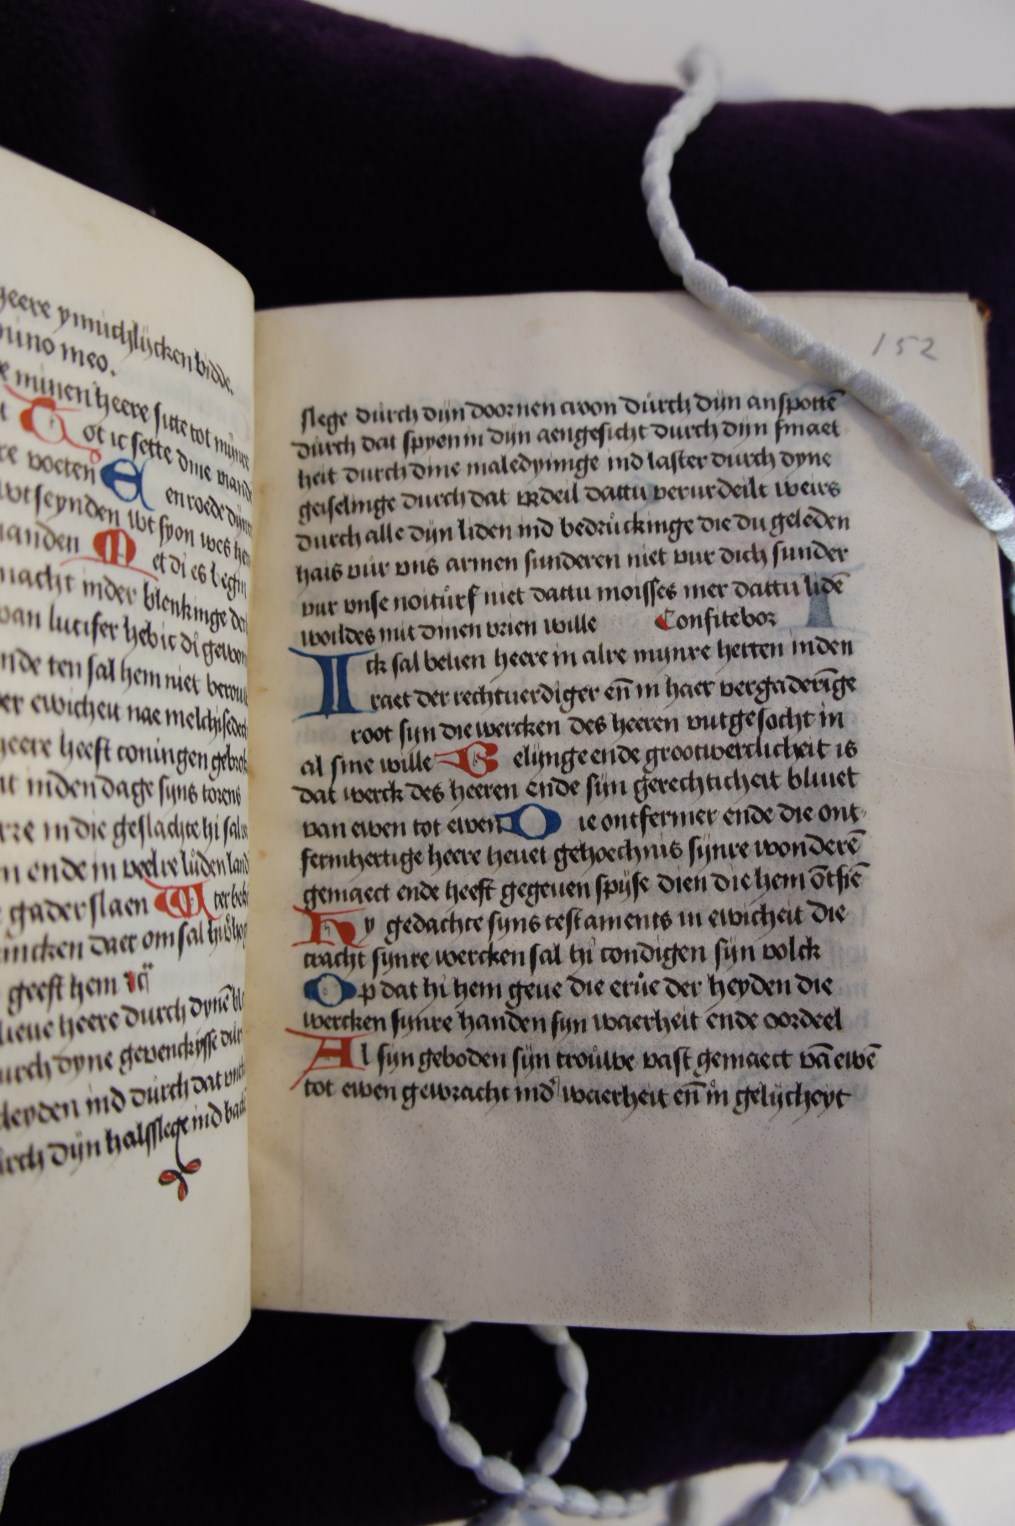 heere ynnichlijcken bidde.
mino meo.
minen heere sitte tot mijnre
Tot ic sette dine viande
voeten Een roede dijnre
wtseynden wt syon wes heer
vianden Met di es begin
macht inder blenkinge der
van lucifer heb ic di gewon
ende ten sal hem niet berou
ewicheit nae melchisedech
heere heeft coningen gebrok
inden dage sijns torens
in die geslachte hi sal
ende in veelre luden land
gader slaen
drincken daer om sal hi
geeft hem
lieve heere durch dynē
durch dyne gevenckysse dur
leyden ind durch dat
durch dijn halsslege ind
152
slege durch dijn doornen croon durch dijn anspottē
durch dat spyen in dijn aengesicht durch dijn smaet
heit durch dine maledyinge ind laster durch dyne
geiselinge durch dat urdeil dattu verurdeilt weirs
durch alle dijn liden ind bedruckinge die du geleden
hais vur ons armen sunderen niet vur dich sunder
vur onse noiturf niet dattu moisses mer dattu lidē
woildes mit dinen vrien wille Confitebor
Ick sal belien heere in alre mijnre herten inden
raet der rechtverdiger en̄ in haer vergaderīge
root sijn die wercken des heeren wtgesocht in
al sine wille Belijnge ende grootwerclicheit is
dat werck des heeren ende sijn gerechticheit blivet
van ewen tot ewen Die ontfermer ende die ont
fermhertige heere hevet gehoechnis sijnre wonderē
gemaect ende heeft gegeven spijse dien die hem ōtsiē
Hy gedachte sijns testaments in ewicheit die
cracht sijnre wercken sal hi condigen sijn volck
Op dat hi hem geve die erve der heyden die
wercken sijnre handen sijn waerheit ende oordeel
Al sijn geboden sijn trouwe vast gemaect vā ewē
tot ewen gewracht ind waerheit en̄ in gelijcheyt